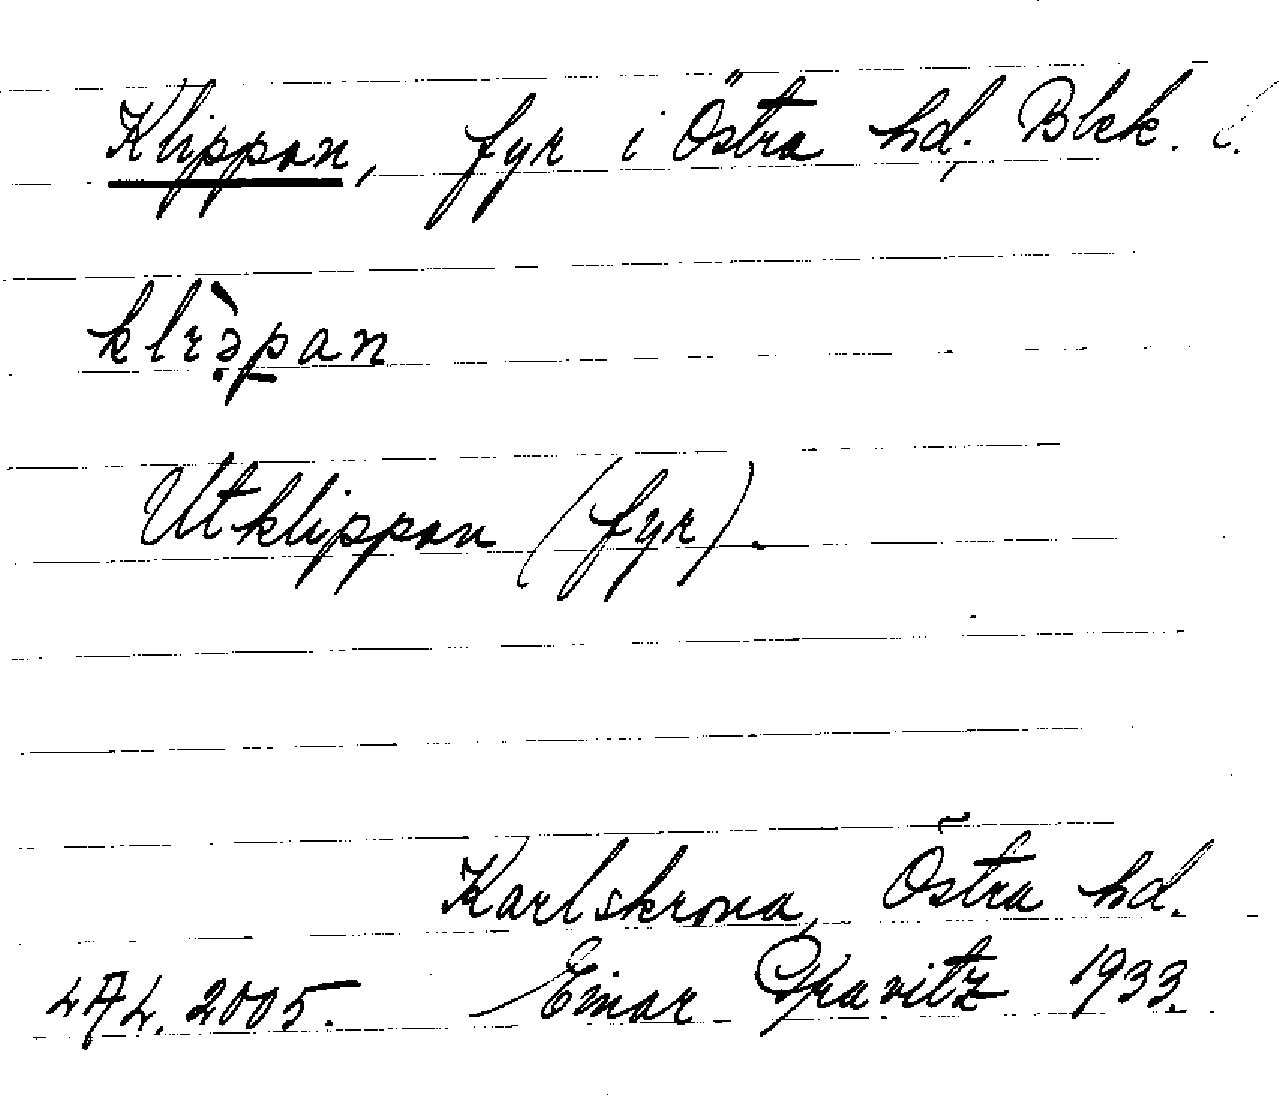 Klippan, fyr i Östra hd, Blek. l.
klìəpan
Utklippan (fyr).
Karlskrona, Östra hd.
LAL. 2005. Einar 1933.